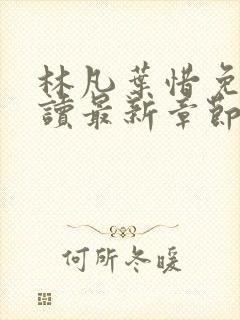 林凡葉惜免
讀最新章節
何所冬暖